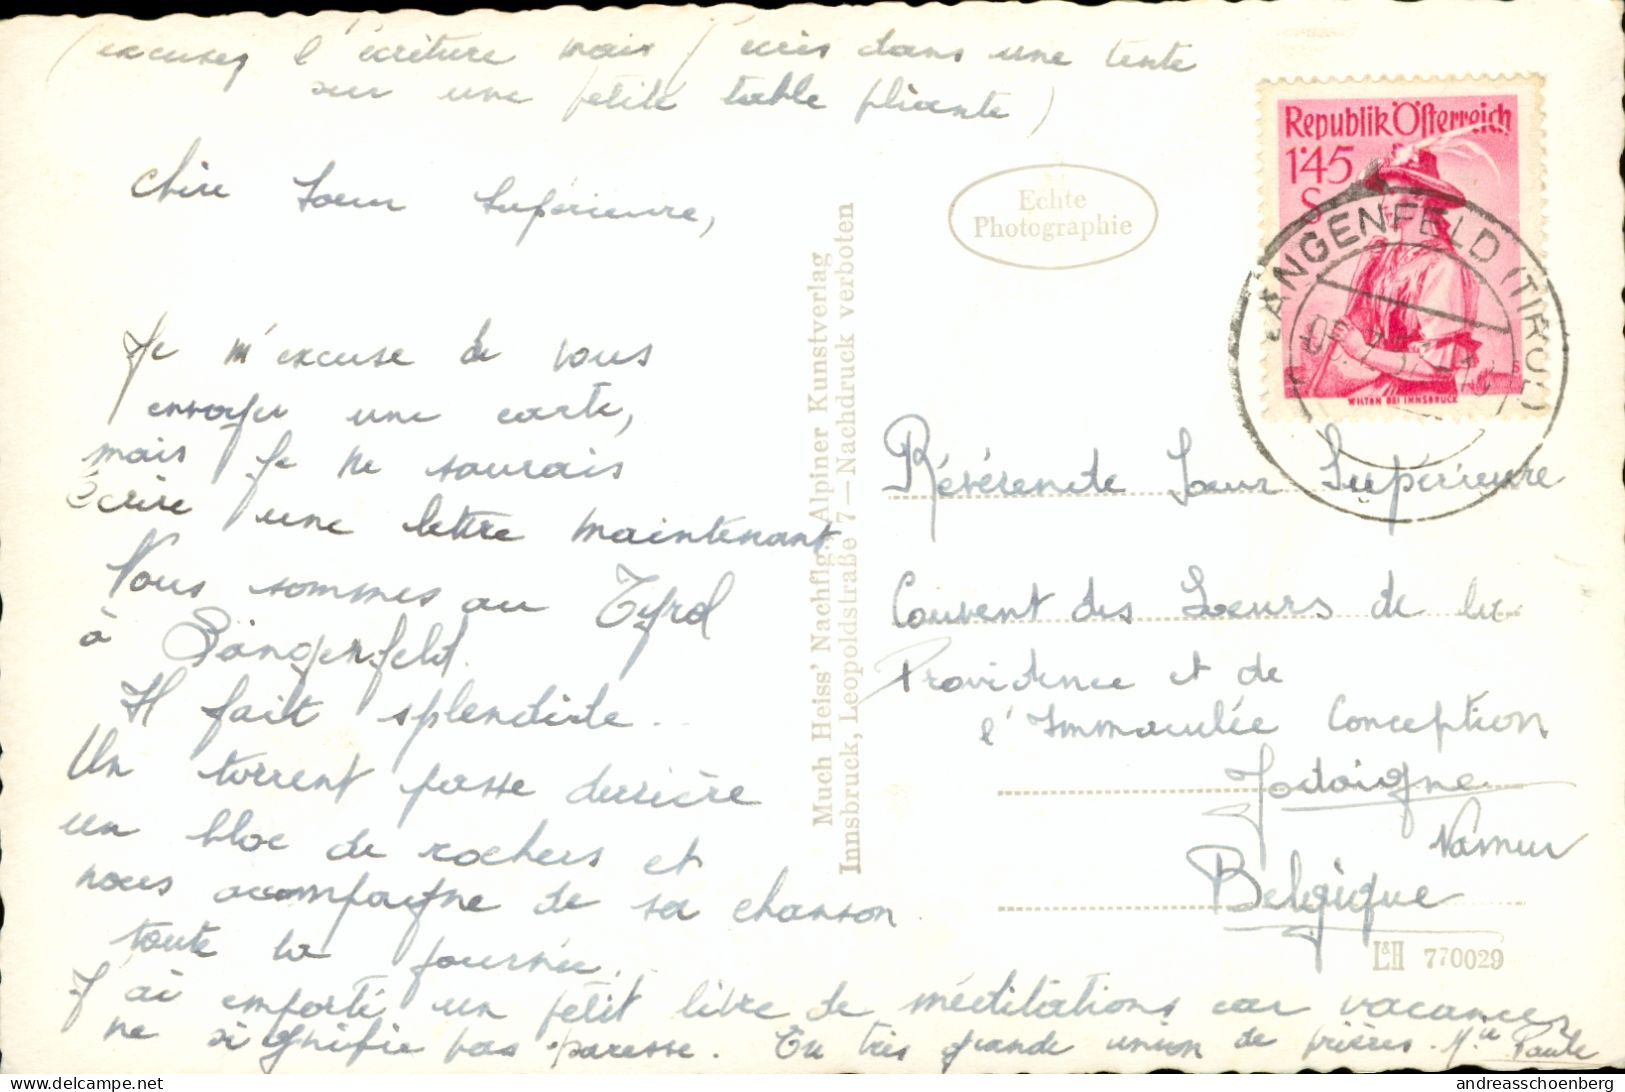 (excusez l'écriture mais j'écris dans une tente
sur une petite table pliante)
Chère Soeur Supérieure,
Je m'excuse de vous
envoyer une carte,
mais je ne saurais
écrire une lettre maintenant
Nous sommes au Tyrol
à Längenfeld.
Il fait splendide...
Un torrent passe derrière
un bloc de rochers et
nous accompagne de sa chanson
toute la journée.
J'ai emporté un petit libre de méditations car vacances
ne signifie pas paresse. En très grande union de prières. M.ie Paule
Much Heiss' Nachflg., Alpiner Kunstverlag
Innsbruck, Leopoldstraße 7 — Nachdruck verboten
Echte
Photographie
Republik Österreich
1'45
S
WILTEN BEI INNSBRUCK
LÄNGENFELD (TIROL)
Révérende Soeur Supérieure
Couvent des Soeurs de la
Providence et de
l'Immaculée Conception
Jodoigne
Namur
Belgique
L&H 770029
andreasschoenberg